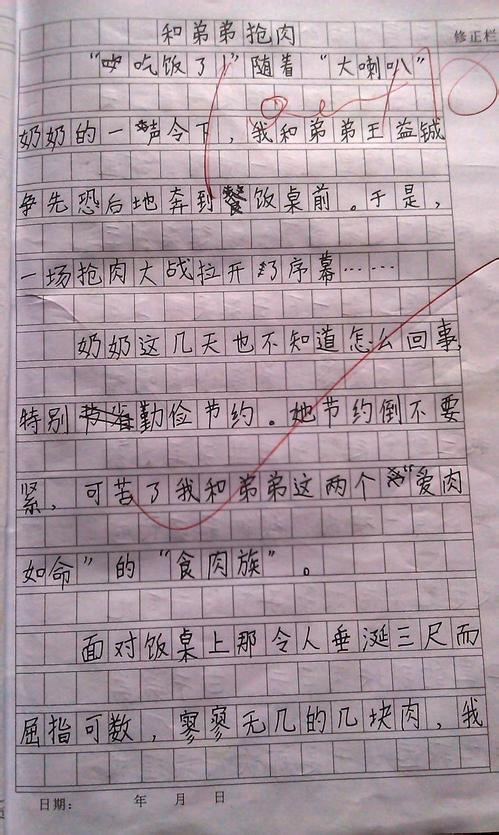 和弟弟抢肉
修正栏
“吃饭了!”随着“大喇叭”
奶奶的一声令下，我和弟弟王益铖
争先恐后地奔到饭桌前。于是，
一场抢肉大战拉开了序幕……
奶奶这几天也不知道怎么回事，
特别勤俭节约。她节约倒不要
紧，可苦了我和弟弟这两个“爱肉
如命”的“食肉族”。
面对饭桌上那令人垂涎三尺而
屈指可数，寥寥无几的几块肉，我
日期： 年 月 日